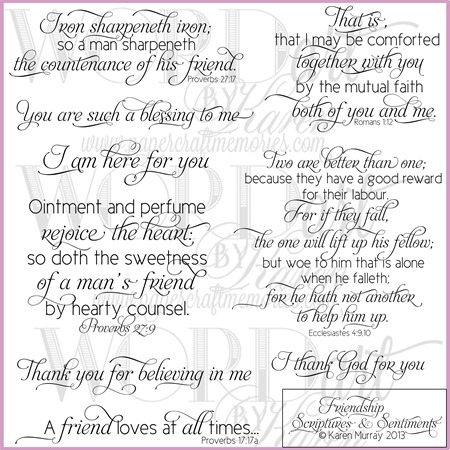 Iron sharpeneth iron;
so a man sharpeneth
the countenance of his friend.
Proverbs 27:17
You are such a blessing to me
I am here for you
Ointment and perfume
rejoice the heart:
so doth the sweetness
of a man's friend
by hearty counsel.
Proverbs 27:9
Thank you for believing in me
A friend loves at all times...
Proverbs 17:17a
That is,
that I may be comforted
together with you
by the mutual faith
both of you and me.
Romans 1:12
Two are better than one;
because they have a good reward
for their labour.
For if they fall,
the one will lift up his fellow;
but woe to him that is alone
when he falleth;
for he hath not another
to help him up.
Ecclesiastes 4:9,10
I thank God for you
Friendship
Scriptures & Sentiments
© Karen Murray 2013
WORD Art
BY Karen
www.papercraftmemories.com
WORD Art
BY Karen
www.papercraftmemories.com
WORD Art
BY Karen